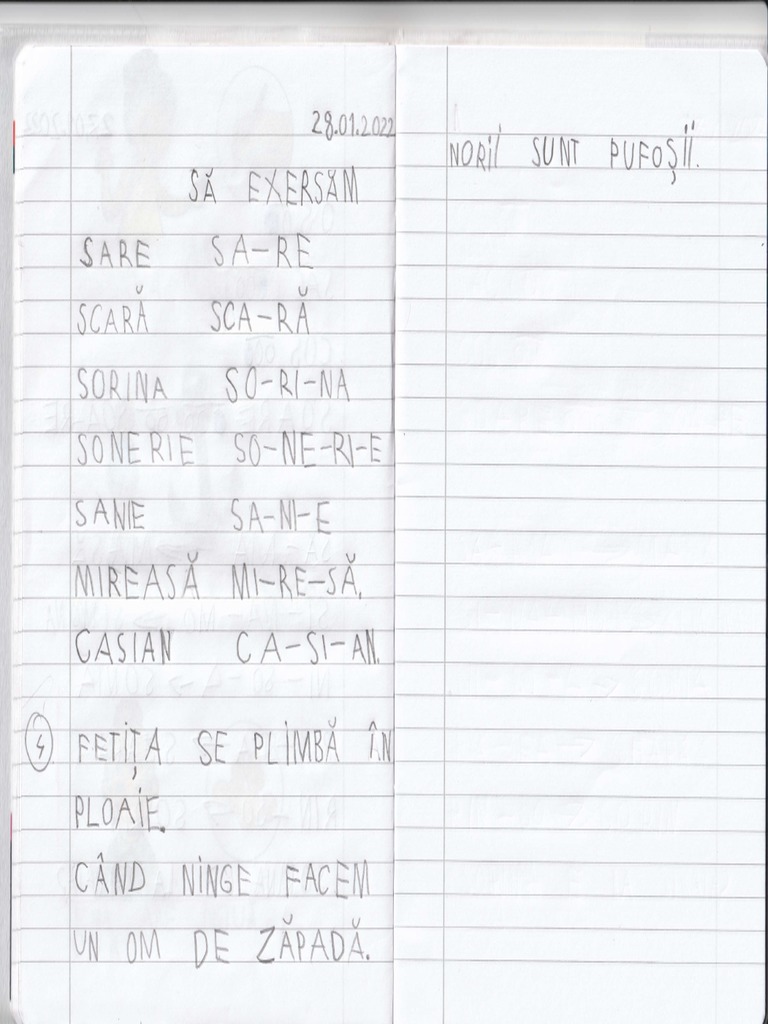 28.01.2022
SĂ EXERSĂM
SARE SA-RE
SCARĂ SCA-RĂ
SORINA SO-RI-NA
SONERIE SO-NE-RI-E
SANIE SA-NI-E
MIREASĂ MI-RE-SĂ.
CASIAN CA-SI-AN.
4 FETIȚA SE PLIMBĂ ÎN
PLOAIE.
CÂND NINGE FACEM
UN OM DE ZĂPADĂ.
NORII SUNT PUFOȘII.